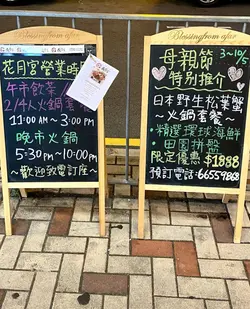 Blessingfrom afar
花月宮營業時
午市飲茶
2/4人火鍋套
11:00 AM ~ 3:00 PM
晚市火鍋
5:30 PM ~ 10:00 PM
~歡迎致電訂座~
Blessingfrom afar
母親節 3~15/5
特別推介
日本野生松葉蟹
~火鍋套餐~
·精選環球海鮮
·田園拼盤
限定優惠 $1888
預訂電話: